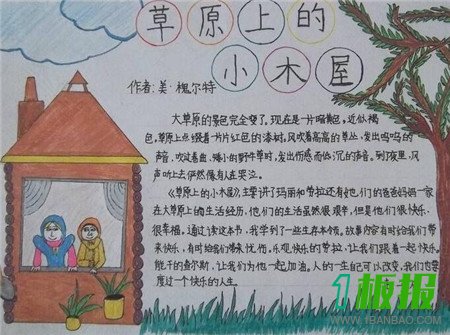 草原上的
小木屋
作者:美·槐尔特
大草原的景色完全变了。现在是一片暗黄色。近似褐
色,草原上点缀着一片片红色的漆树。风吹着高高的草丛,发出呜呜的
声音,吹过卷曲、矮小的野牛草时,发出伤感而低沉的声音。到了夜里,风
声听上去俨然像有人在哭泣。
《草原上的小木屋》主要讲了玛丽和萝拉还有她们的爸爸妈妈一家
在大草原上的生活经历,他们的生活虽然很艰辛,但是他们很快乐、
很幸福。通过读这本书,我学到了一些生存本领。故事内容有时给我们带
来快乐,有时给我们带来忧伤。乐观快乐的萝拉,让我们跟着一起快乐。
能干的查尔斯,让我们为他一起加油。人的一生自己可以改变,我们也要
度过一个快乐的人生。
1板报
WWW.1BANBAO.COM